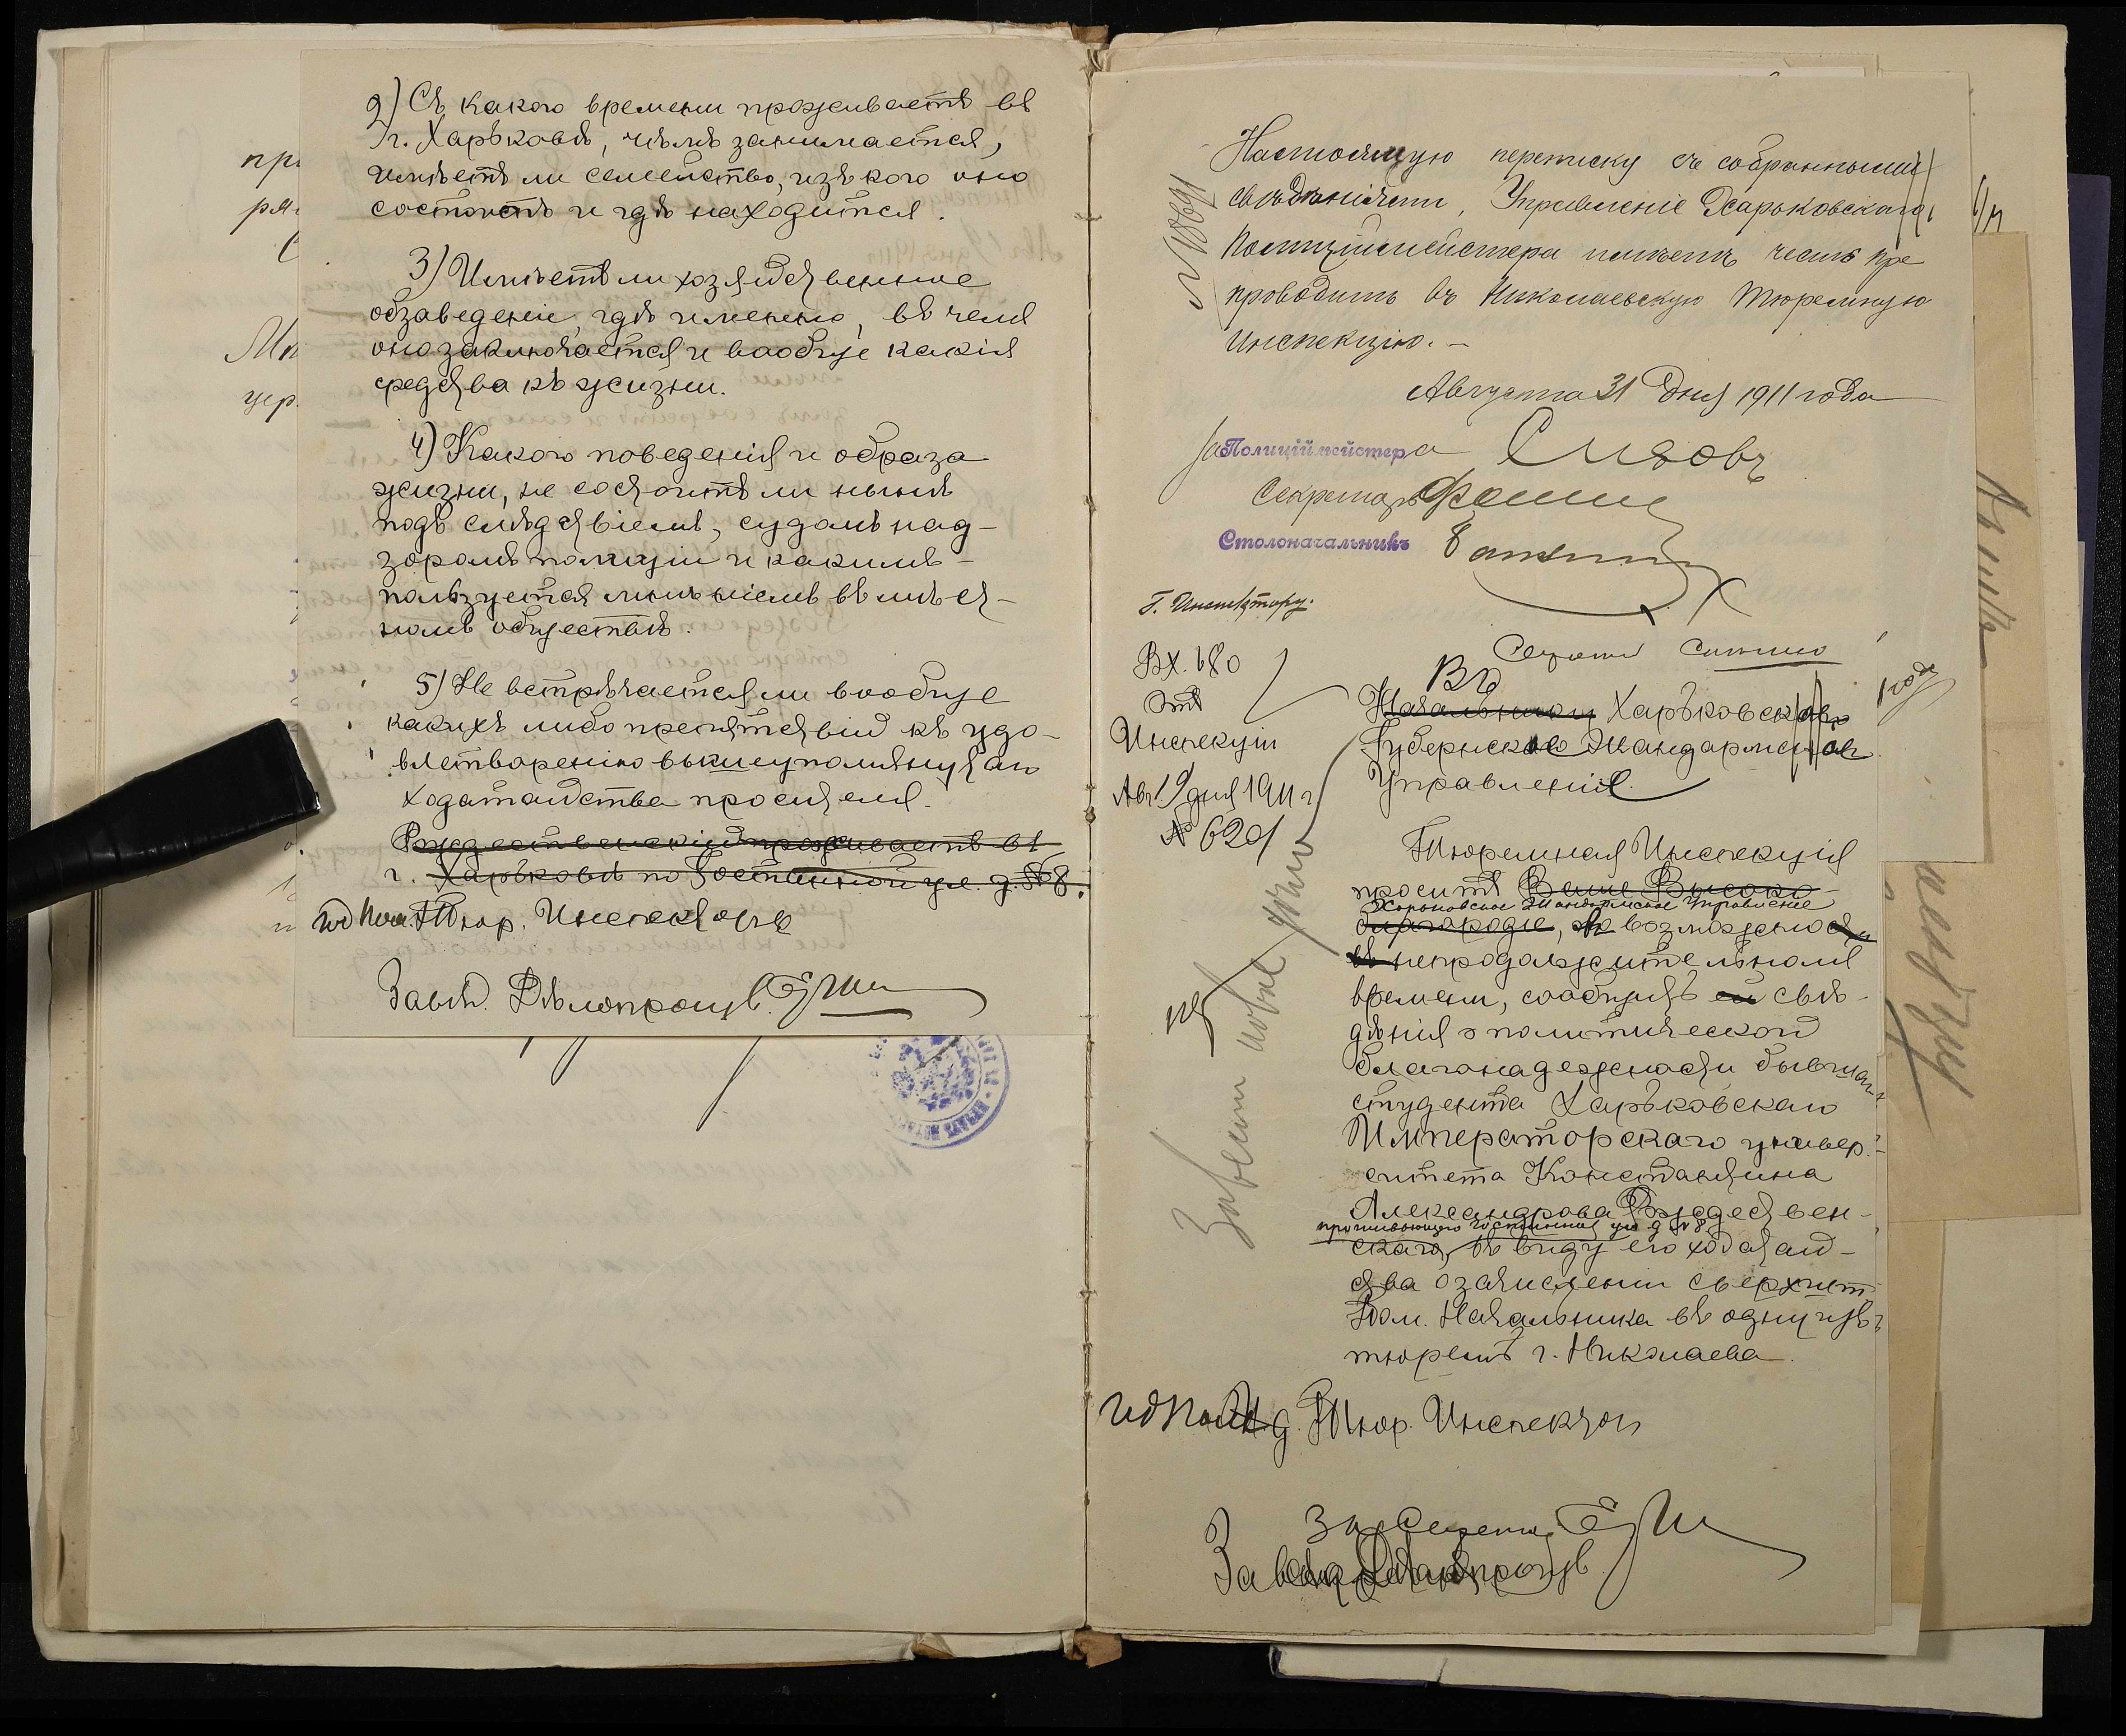 2) Съ какого времени проживаетъ въ
г. Харьковѣ, чѣмъ занимается,
имѣетъ ли семейство, изъ кого оно
состоитъ и гдѣ находится.
3) Имѣетъ ли хозяйственное
обзаведеніе, гдѣ именно, въ чемъ
оно заключается и вообще какія
средства къ жизни.
4) Какого поведенія и образа
жизни, не состоитъ ли нынѣ
подъ слѣдствіемъ, судомъ над-
зоромъ полиціи и какимъ-
пользуется мнѣніемъ въ мѣст-
номъ обществѣ.
5) Не встрѣчается ли вообще
какихъ либо препятствій къ удо-
влетворенію вышеупомянутаго
ходатайства просителя.
Рождественскій проживаетъ въ
г. Харьковѣ по Гостинной ул. д. № 8.
Тюр. Инспекторъ
Завѣд. Дѣлопроизв.
Настоящую переписку съ собранными
свѣдѣніями, Управленіе Харьковскаго
Полиціймейстера имѣетъ честь пре
проводить въ Николаевскую Тюремную
Инспекцію. —
Августа 31 дня 1911 года
За Полиціймейстера
Секретарь
Столоначальникъ
Г. Инспектору.
Вх. 680
Отъ
Инспекціи
Авг. 19 дня 1911 г.
№ 6201
Въ
Начальнику Харьковское
Губернское Жандармское
Управленіе
Тюремная Инспекція
проситъ Ваше Высоко-
Харьковское Жандармское Управленіе
благородіе, въ возможности
въ непродолжительномъ
времени, сообщить ей свѣ-
дѣнія о политической
благонадежности бывшаго
студента Харьковскаго
Императорскаго универ-
ситета Константина
Александрова Рождествен-
проживающаго Гостинная ул д № 8
скаго, въ виду его ходатай-
ства о зачисленіи сверхшт
Пом. Начальника въ одну изъ
тюремъ г. Николаева.
Тюр. Инспектор